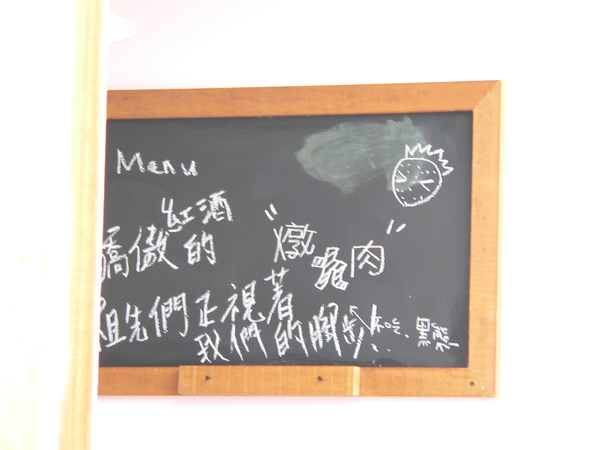 Menu
紅酒
"燉肉"
驕傲的
祖先們正視著
我們的腳步
吃、黑熊